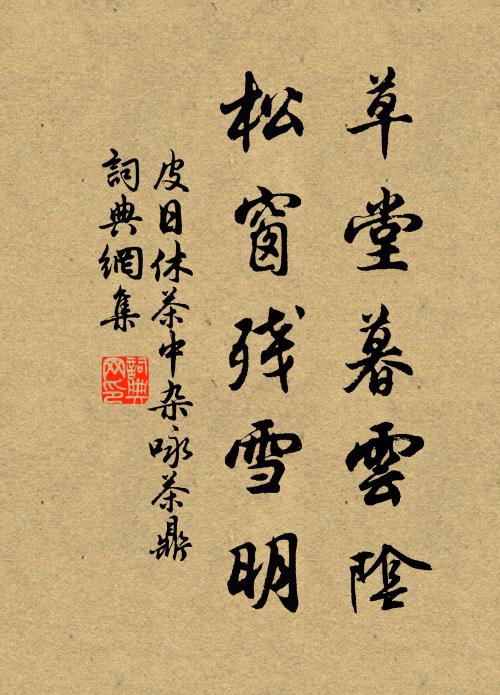 草堂暮雲陰
松窗残雪明
皮日休茶中杂咏茶鼎
詞典網集
詞典網印